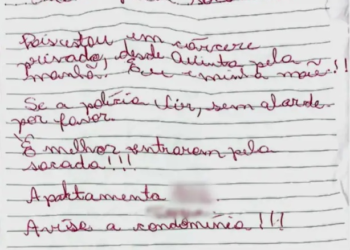 Pois estou em cárcere
privado, desde Quinta pela
manhã. Eu e minha mãe!!
Se a polícia vir, sem alarde
por favor.
É melhor entrarem pela
sacada!!!
Apartamento
Avise a condomínio!!!